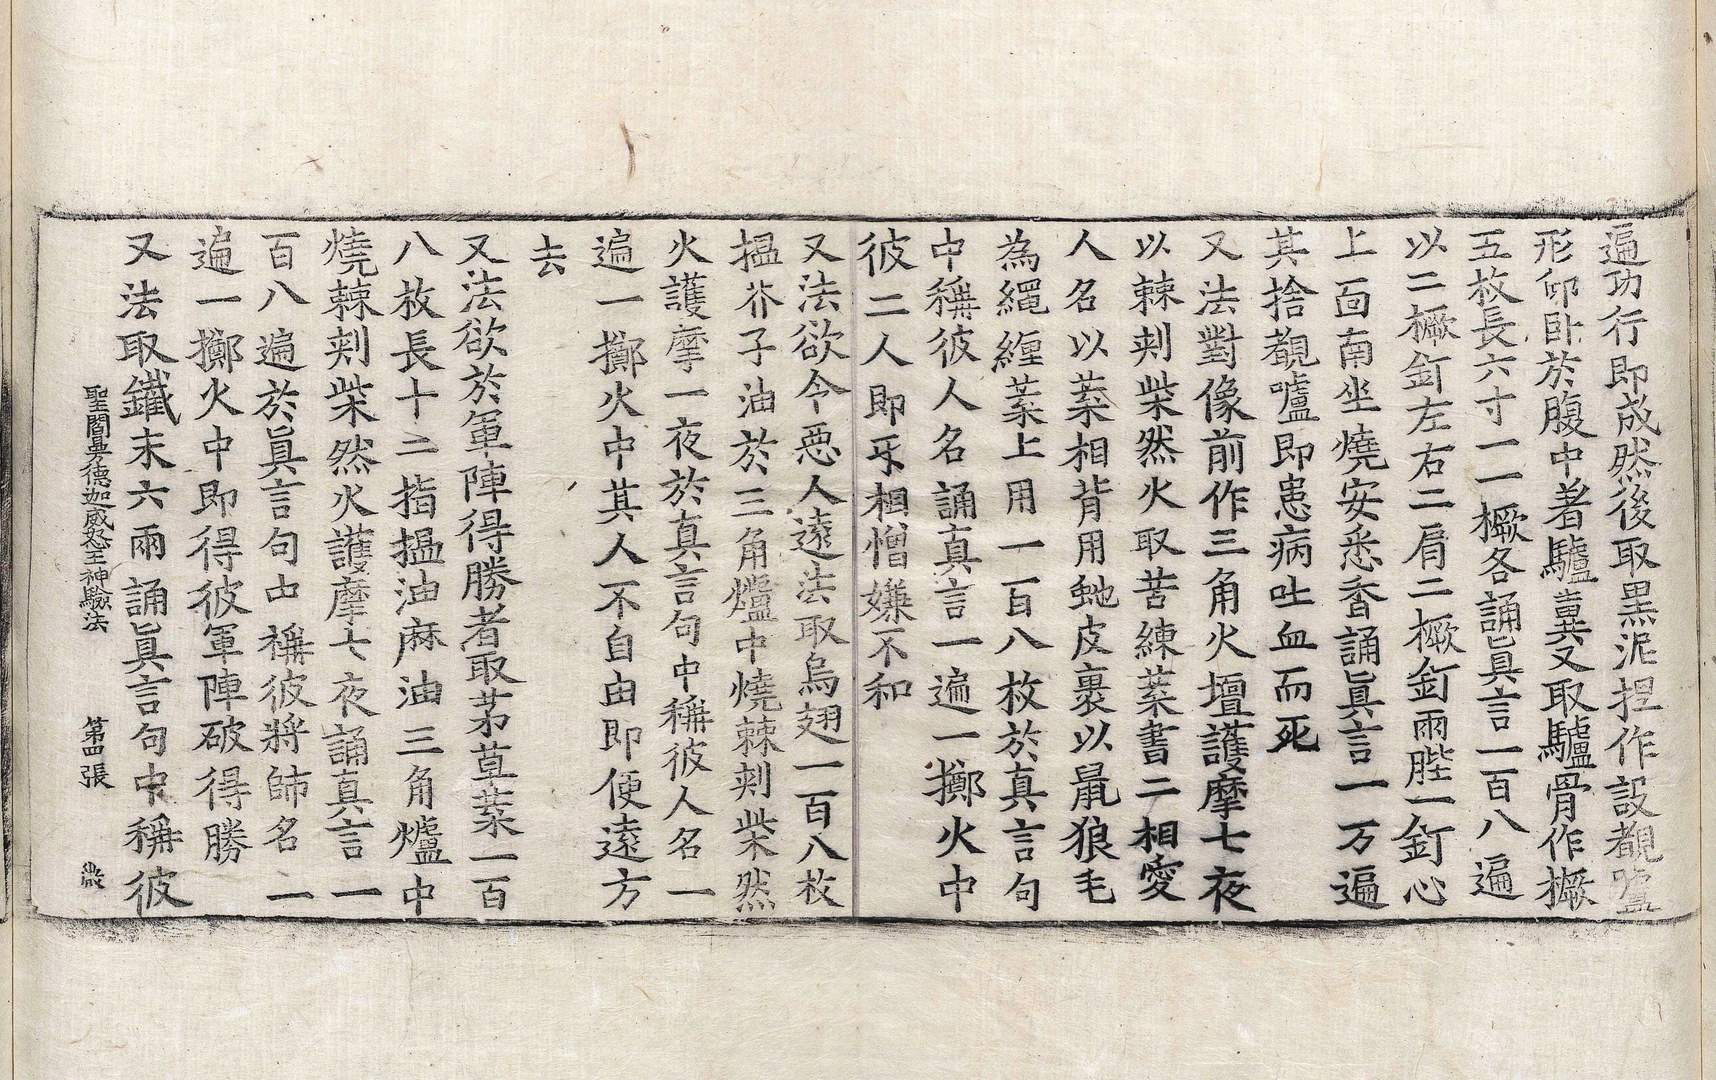 遍功行即成然後取黑泥担作設覩嚧
形仰卧於腹中著驢糞又取驢骨作橛
五枚長六寸一一橛各誦眞言一百八遍
以二橛釘左右二肩二橛釘兩䏶一釘心
上面南坐燒安悉香誦眞言一万遍
其捨覩嚧即患病吐血而死
又法對像前作三角火壇護摩七夜
以棘刾柴然火取苦練葉書二相愛
人名以葉相背用虵皮裹以鼠狼毛
為繩纏葉上用一百八枚於真言句
中稱彼人名誦真言一遍一擲火中
彼二人即㸦相憎嫌不和
又法欲令惡人遠去取烏翅一百八枚
搵芥子油於三角爐中燒棘刾柴然
火護摩一夜於真言句中稱彼人名一
遍一擲火中其人不自由即便遠方
去
又法欲於軍陣得勝者取茅草葉一百
八枚長十二指搵油麻油三角爐中
燒棘刾柴然火護摩七夜誦真言一
百八遍於眞言句中稱彼將師名一
遍一擲火中即得彼軍陣破得勝
又法取鐵末六兩誦眞言句中稱彼
聖閻曼德迦威怒王神驗法　第四張